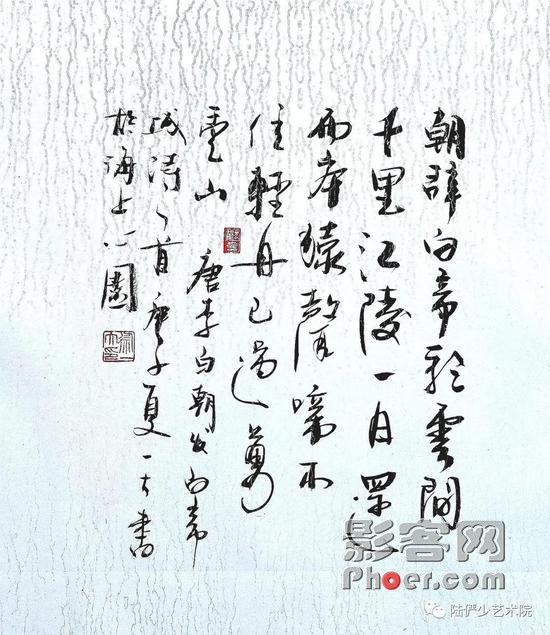 朝辭白帝彩雲間
千里江陵一日還
兩岸猿聲啼不
住輕舟已過萬
重山 唐李白朝发白帝
城诗一首庚子夏一大書
於海上心園
影客网
Phoer.com
陆俨少艺术院